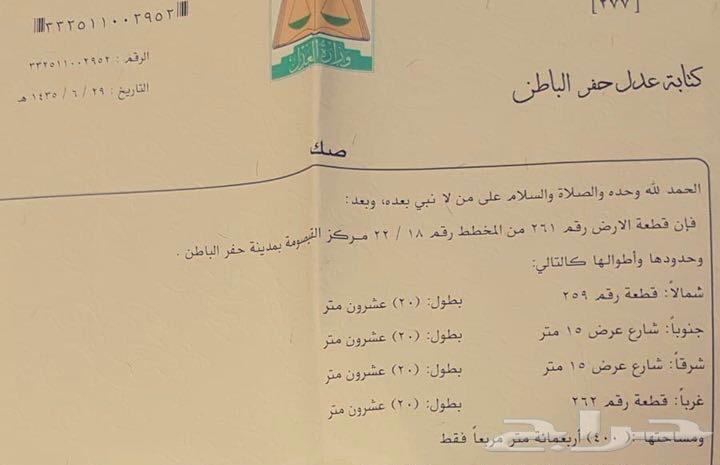 [٢٧٧]
٣٣٢٥١١٠٠٢٩٥٢
الرقم : ٣٣٢٥١١٠٠٢٩٥٢
التاريخ : ٢٩ / ٦ / ١٤٣٥ هـ
وزارة العدل
كتابة عدل حفر الباطن
صك
الحمد لله وحده والصلاة والسلام على من لا نبي بعده، وبعد:
فإن قطعة الارض رقم ٢٦١ من المخطط رقم ١٨ / ٢٢ مركز القيصومة بمدينة حفر الباطن .
وحدودها وأطوالها كالتالي:
شمالاً: قطعة رقم ٢٥٩ بطول: (٢٠) عشرون متر
جنوباً: شارع عرض ١٥ متر بطول: (٢٠) عشرون متر
شرقاً: شارع عرض ١٥ متر بطول: (٢٠) عشرون متر
غرباً: قطعة رقم ٢٦٢ بطول: (٢٠) عشرون متر
ومساحتها :( ٤٠٠) أربعمائة متر مربعاً فقط
حراج